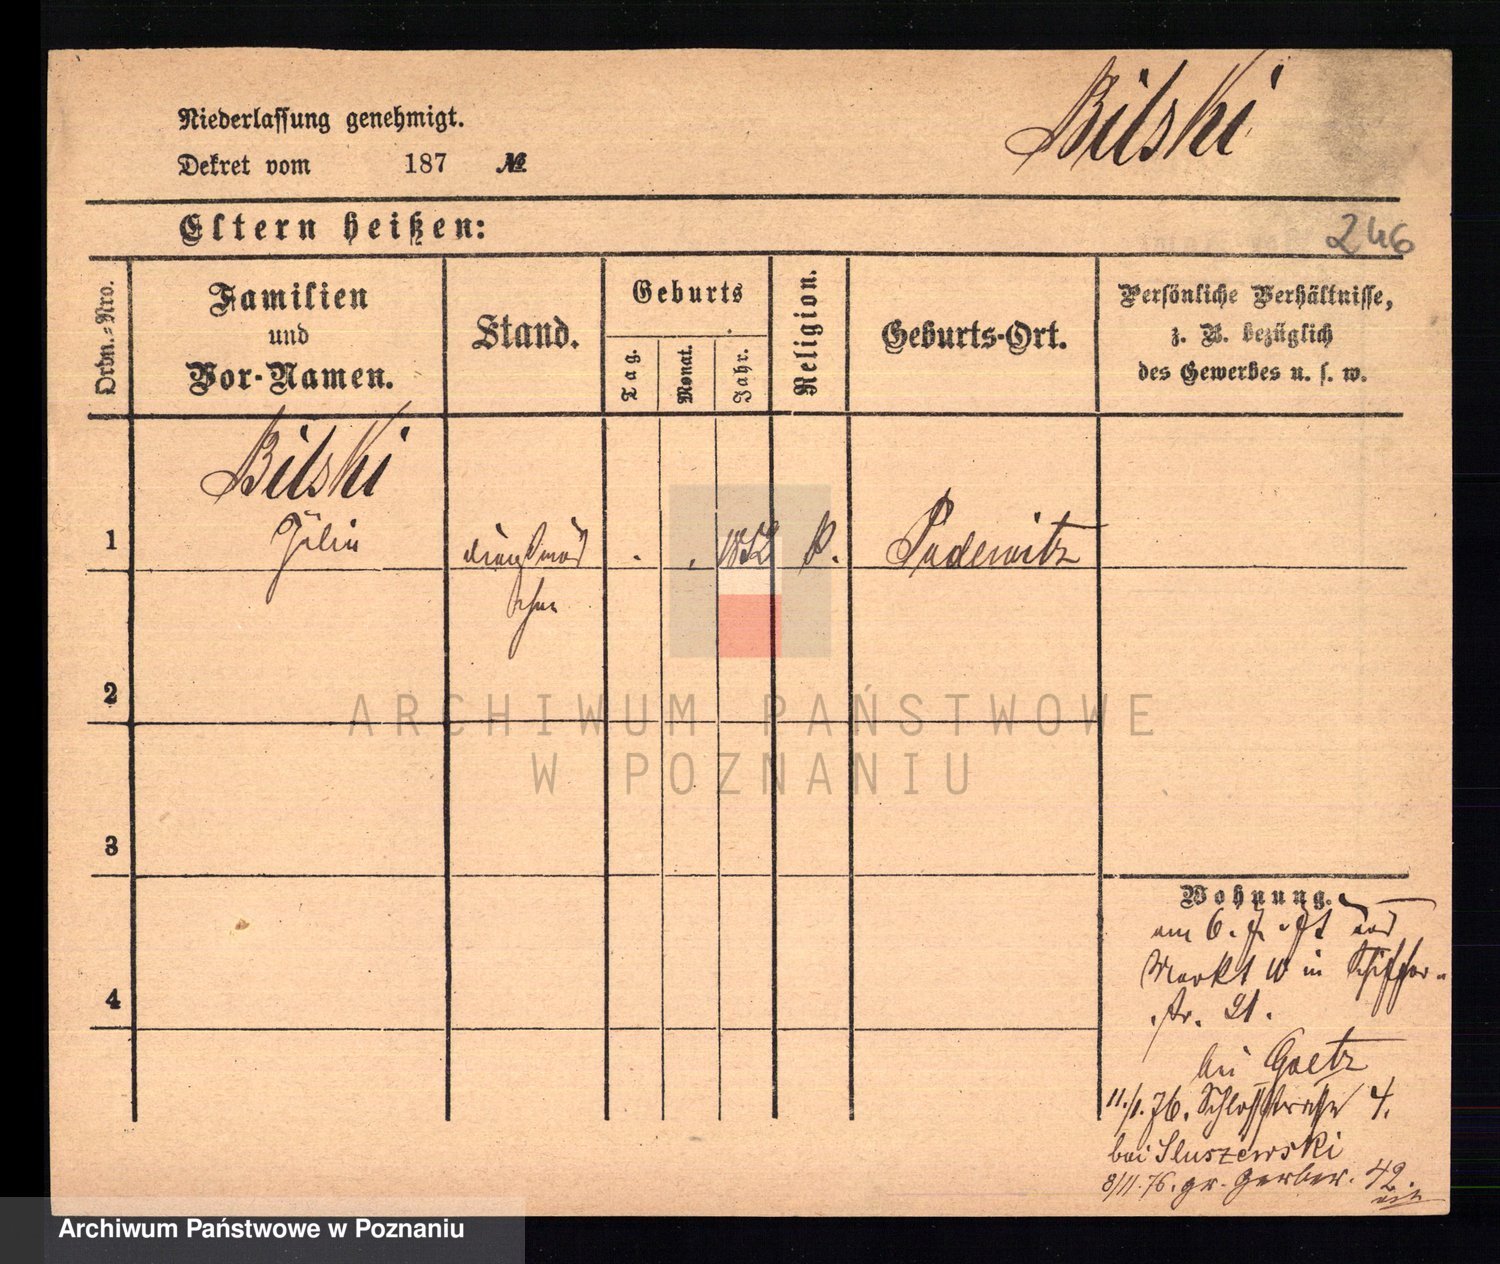 Bilski
Niederlassung genehmigt.
Dekret vom 187 №
Eltern heißen:
246
Ordn.=Nro.
Familien
und
Vor-Namen.
Stand.
Geburts
Tag.
Monat.
Jahr.
Religion.
Geburts-Ort.
Persönliche Verhältnisse,
z. B. bezüglich
des Gewerbes u. s. w.
Bilski
1 1852 Pudewitz
2
ARCHIWUM PAŃSTWOWE
W POZNANIU
3
4
Wohnung.
am 6.
Markt 10 in Schiffer-
str. 21.
bei Goetz
11./1. 76. Schlossstrasse 4.
bei Sluszewski
8/11. 76. gr. Gerber. 42.
Archiwum Państwowe w Poznaniu